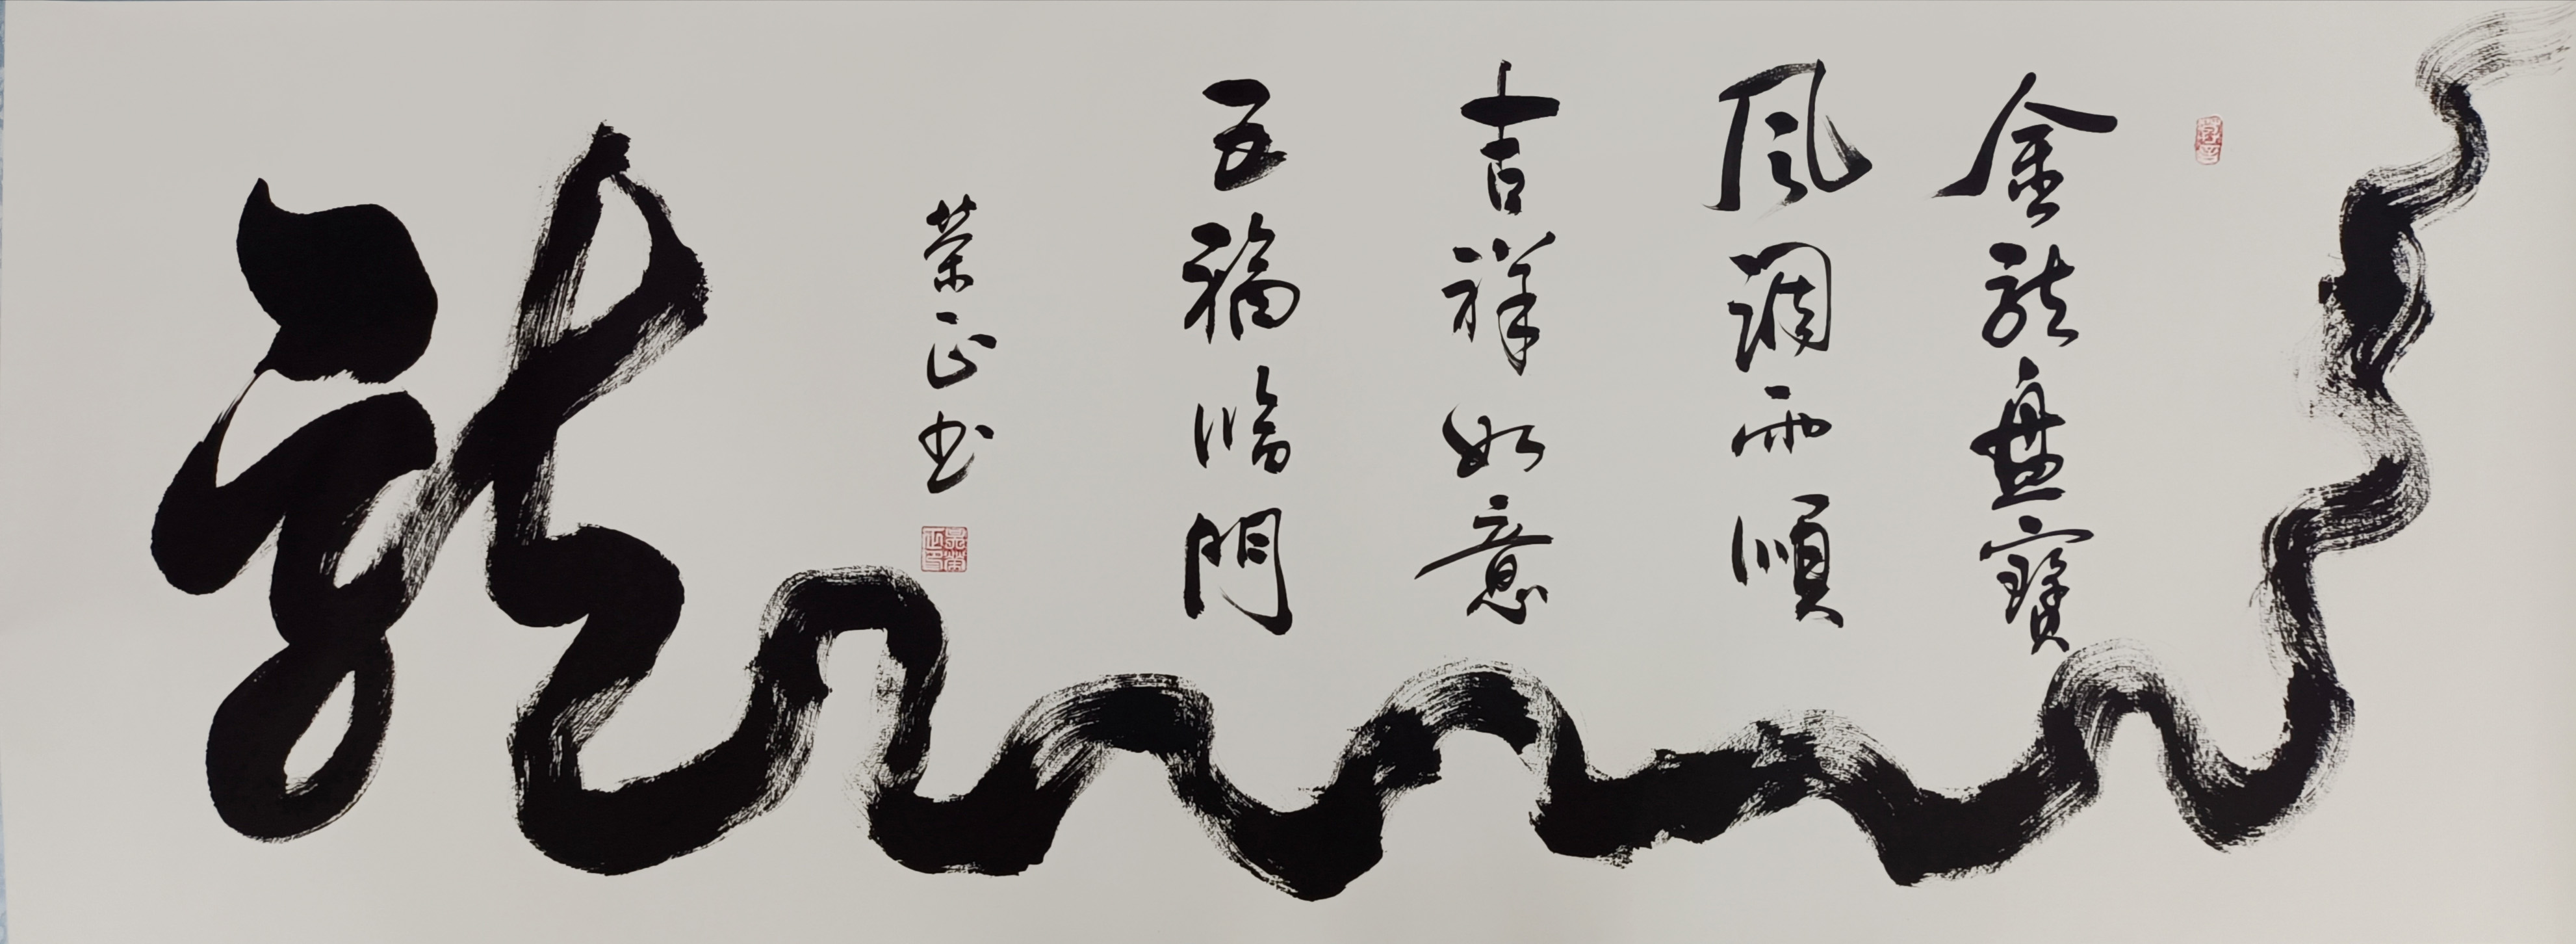 金龍盘寳
風調雨順
吉祥如意
五福临门
荣正书
龍